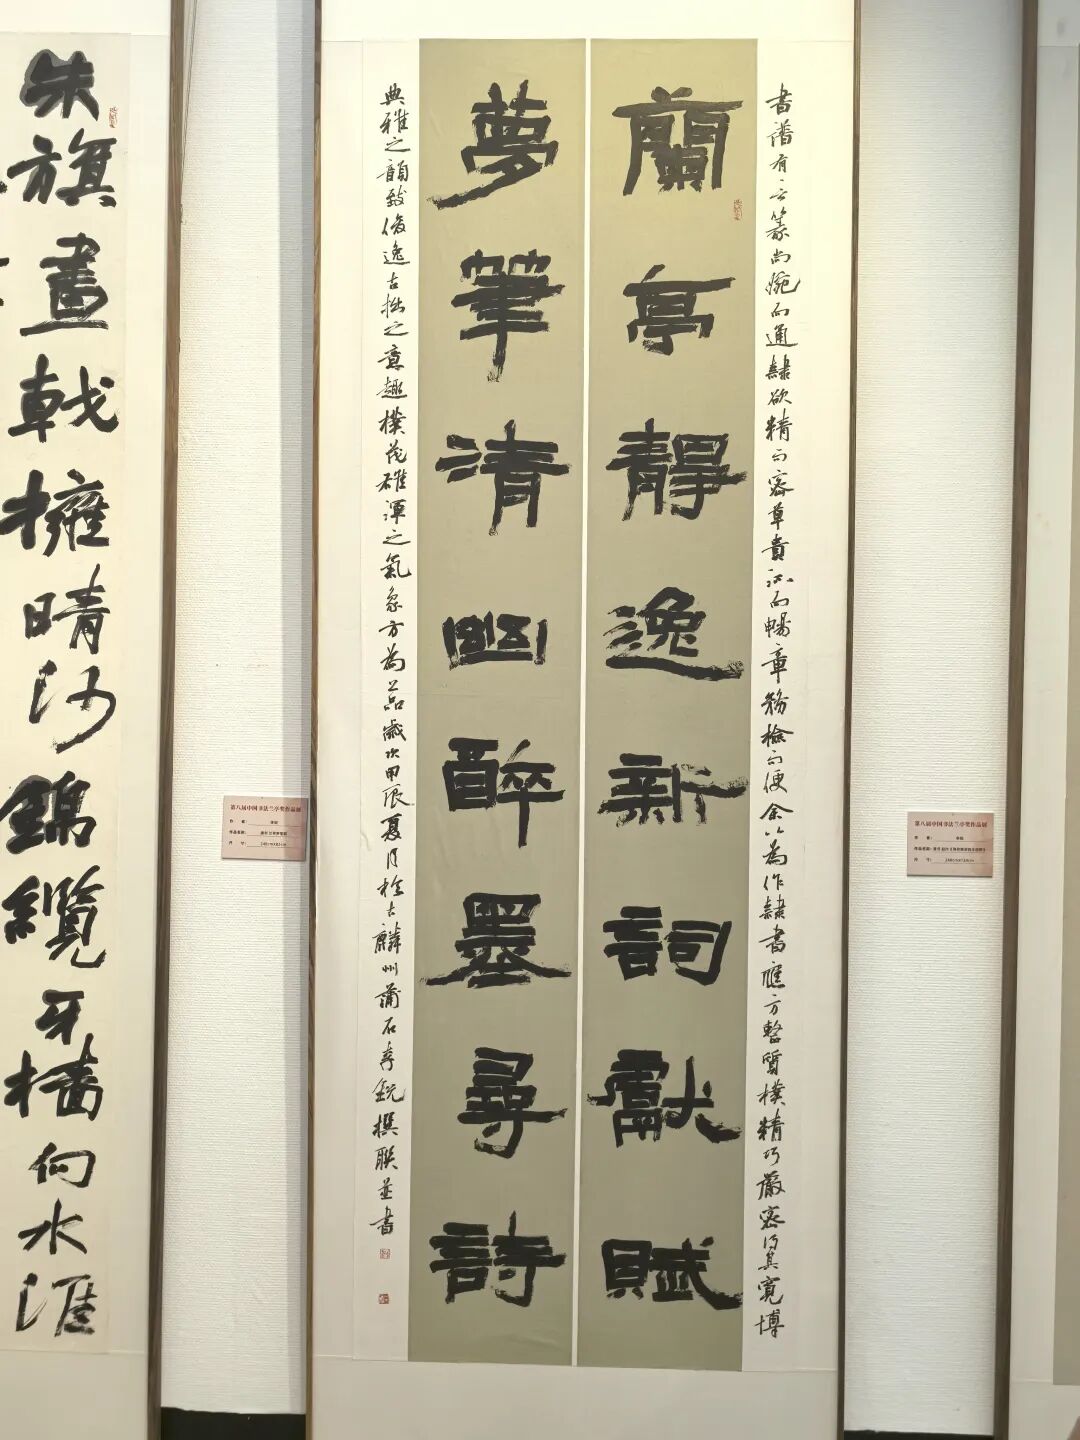 書譜有云篆尚婉而通隸欲精而密草貴流而暢章務檢而便余以為作隸書應方整質樸精巧嚴密得其寬博
蘭亭靜逸新詞獻賦
夢筆清幽醉墨尋詩
典雅之韻致俊逸古拙之意趣樸茂雄渾之氣象方為上品歲次甲辰夏月於古麟州蒲石李銳撰聯並書
朱旗畫戟擁晴沙錦纜牙檣向水涯
第八届中国书法兰亭奖作品展
第八届中国书法兰亭奖作品展